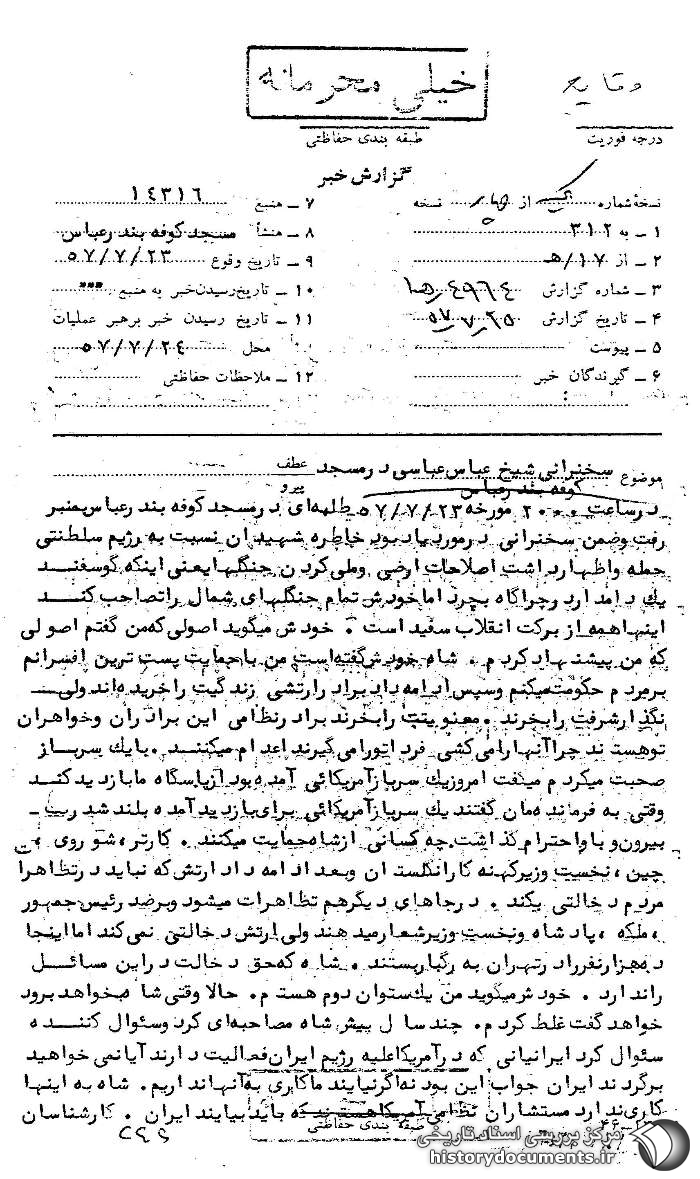 وقایع
خیلی محرمانه
درجه فوریت
طبقه بندی حفاظتی
گزارش خبر
نسخهٔ شماره یک از چهار نسخه
۱ ـ به ۳۱۲
۲ ـ از ۱۷/هـ
۳ ـ شماره گزارش
۴ ـ تاریخ گزارش
۵ ـ پیوست
۶ ـ گیرندگان خبر
۷ ـ منبع ۱۴۳۱۶
۸ ـ منشأ مسجد کوفه بندرعباس
۹ ـ تاریخ وقوع ۵۷/۷/۲۳
۱۰ ـ تاریخ رسیدن خبر به منبع
۱۱ ـ تاریخ رسیدن خبر برهبر عملیات
محل ۵۷/۷/۲۴
۱۲ ـ ملاحظات حفاظتی
موضوع سخنرانی شیخ عباس عباسی در مسجد عطف
کوفه بندرعباس پیرو
در ساعت ۲۰۰۰ مورخه ۵۷/۷/۲۳ طلبه‌ای در مسجد کوفه بندرعباس منبر
رفت و ضمن سخنرانی در مورد یاد بود خاطره شهیدان نسبت به رژیم سلطنتی
حمله و اظهار داشت اصلاحات ارضی وملی کردن جنگلها یعنی اینکه گوسفند
یک دامدار در چراگاه بچرد اما خودش تمام جنگلهای شمال را تصاحب کند
اینها همه از برکت انقلاب سفید است . خودش میگوید اصولی که من گفتم اصولی
که من پیشنهاد کردم . شاه خودش گفته است من با حمایت پست ترین افسرانم
بر مردم حکومت میکنم وسپس ادامه داد برادر ارتشی زندگیت را خریده‌اند ولی
نگذار شرفت را بخرند . معنویتت را بخرند برادر نظامی این برادران وخواهران
تو هستند چرا آنها را می کشی فردا تورا می گیرند اعدام میکنند . با یک سرباز
صحبت میکردم میگفت امروز یک سرباز آمریکائی آمده بود از پاسگاه ما بازدید کند
وقتی به فرمانده‌مان گفتند یک سرباز آمریکائی برای بازدید آمده بلند شد رفت ـ
بیرون و با او احترام گذاشت چه کسانی از شاه حمایت میکنند . کارتر ، شوروی ،
چین ، نخست وزیر کهنه کار انگلستان وبعد ادامه داد ارتش که نباید در تظاهرا
مردم دخالتی بکند . در جاهای دیگر هم تظاهرات میشود وبر ضد رئیس جمهور
، ملکه ، پادشاه ونخست وزیر شعار میدهند ولی ارتش دخالتی نمی کند اما اینجا
ده هزار نفر را در تهران به رگبار بستند . شاه که حق دخالت در این مسائل
را ندارد . خودش میگوید من یک ستوان دوم هستم . حالا وقتی شاه میخواهد برود
خواهد گفت غلط کردم . چند سال پیش شاه مصاحبه‌ای کرد وسئوال کننده
سئوال کرد ایرانیانی که در آمریکا علیه رژیم ایران فعالیت دارند آیا نمی خواهید
برگردند ایران جواب این بود نه اگر نیایند ما کاری به آنها نداریم . شاه به اینها
کاری ندارد مستشاران نظامی آمریکا هستند که باید بیایند ایران . کارشناسان
طبقه بندی حفاظتی
مرکز بررسی اسناد تاریخی
historydocuments.ir